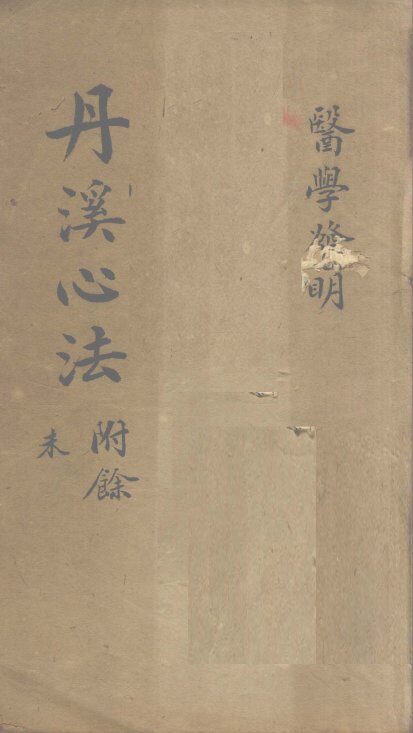 醫學發明
丹溪心法
附餘
未